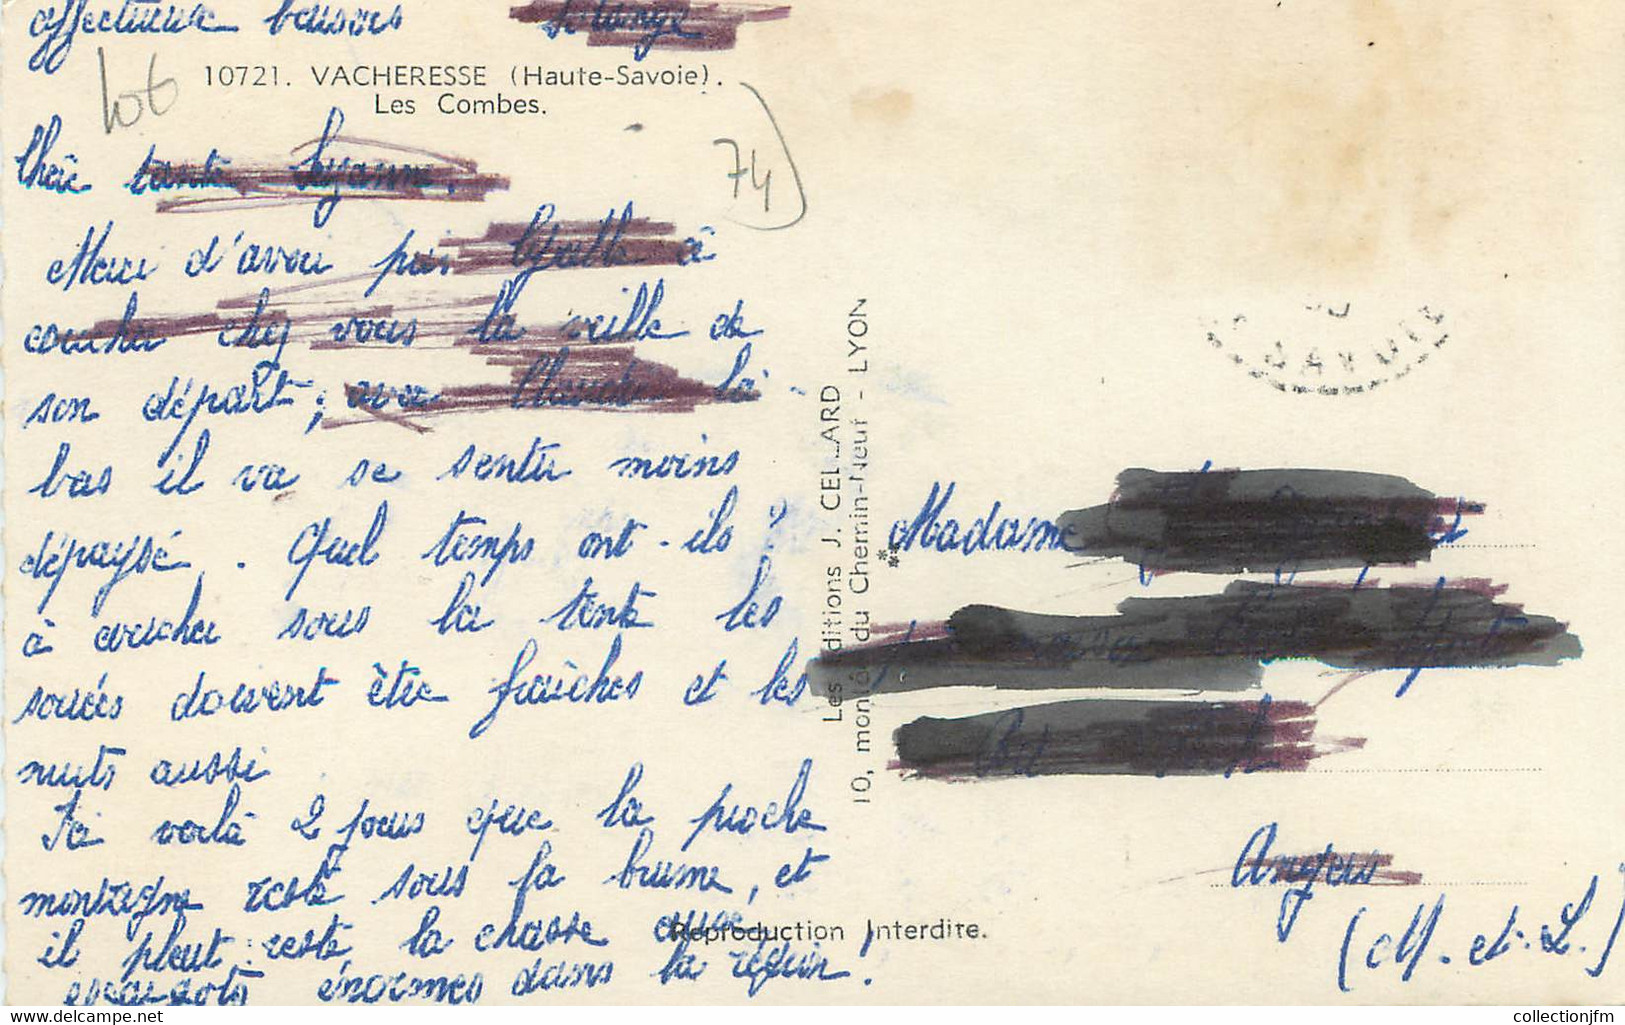 affectueux baisers
10721. VACHERESSE (Haute-Savoie).
Les Combes.
lot
74
Chère tante
Merci d'avoir pris à
coucher chez vous la veille de
son départ ; avec Claude là-
bas il va se sentir moins
dépaysé. Quel temps ont-ils ?
à coucher sous la tente les
soirées doivent être fraîches et les
nuits aussi
Ici voilà 2 jours que la proche
montagne reste sous la brume, et
il pleut : reste la chasse aux
escargots énormes dans la région !
Reproduction Interdite.
Les Editions J. CELLARD
10, montée du Chemin-Neuf - LYON
SAVOIE
Madame
Angers
(M.-et-L.)
collectionjfm